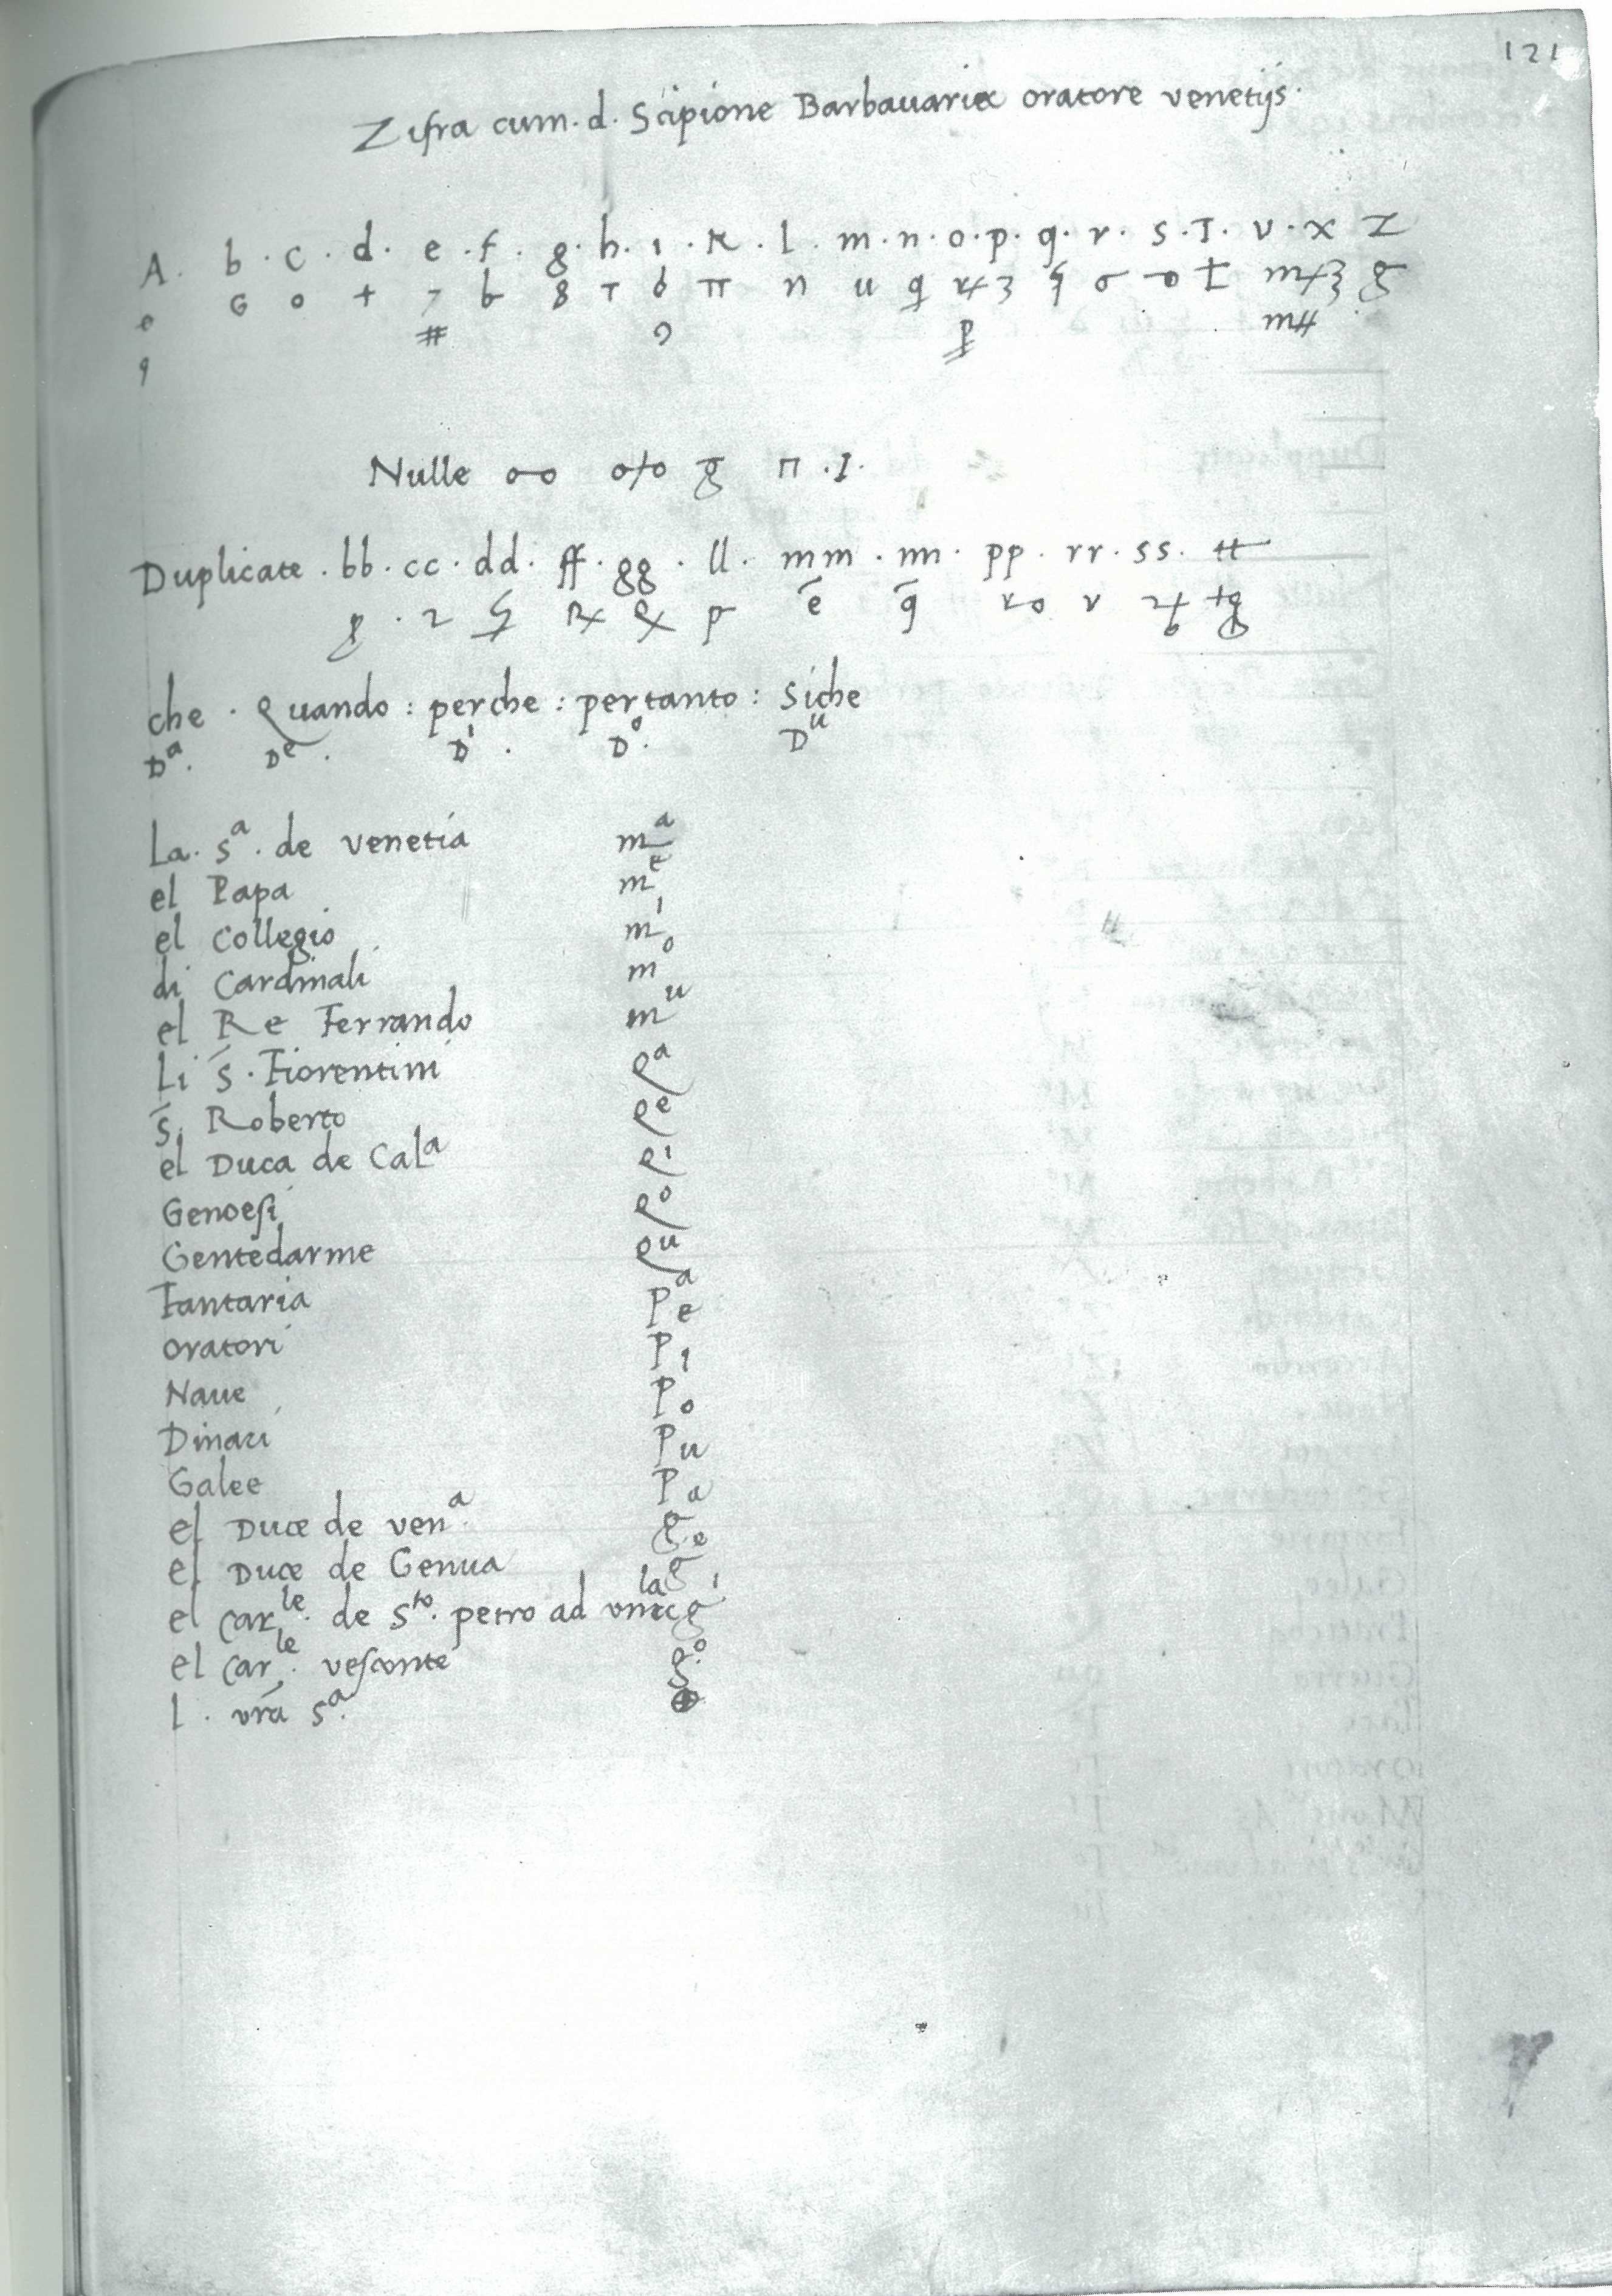 121
Zifra cum. d. Scipione Barbauaria oratore venetijs.
A. b. c. d. e. f. g. h. i. K. l. m. n. o. p. q. r. s. T. v. x Z
G o + 7 b 8 T 6 π n u
# 9
9
Nulle oo o/o g̅ п . I.
Duplicate . bb. cc. dd. ff. gg. ll. mm. nn. pp. rr. ss. tt
che . Quando : perche : pertanto : Siche
Dᵃ. Dᵉ. Dⁱ. Dᵒ. Dᵘ
La. sᵃ. de venetia mᵃ
el Papa mᵉ
el Collegio mⁱ
di Cardinali mᵒ
el Re Ferrando mᵘ
Li s̄. Fiorentini Qᵃ
s̄. Roberto Qᵉ
el Duca de Calᵃ Qⁱ
Genoesi Qᵒ
Gentedarme Qᵘ
Fantaria Pᵃ
oratori Pᵉ
Naue Pⁱ
Dinari Pᵒ
Galee Pᵘ
el Duce de venᵃ. gᵃ
el Duce de Genua gᵉ
el Carˡᵉ. de Sᵗᵒ. petro ad vincˡᵃ gⁱ
el Carˡᵉ. vesconte gᵒ
l. vrā sᵃ. ⊕